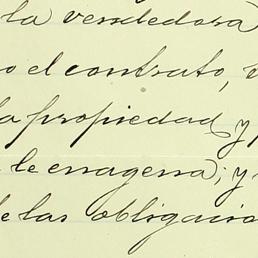 la vendedora
o el contrato,
la propiedad y
le enagena; y
de las obligacio